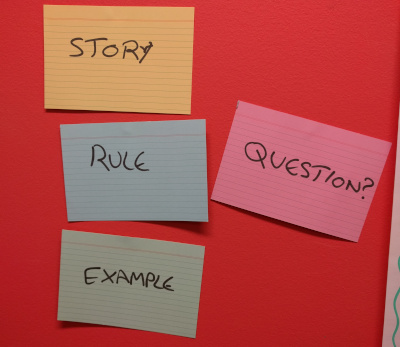 STORY
RULE
QUESTION?
EXAMPLE